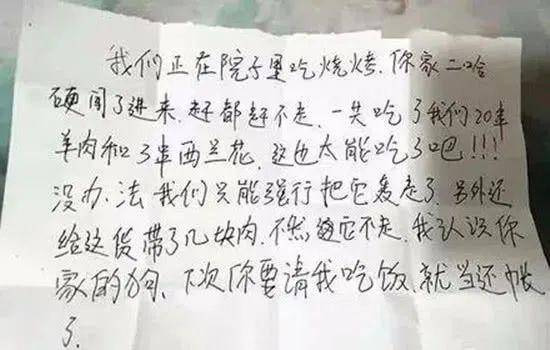 我们正在院子里吃烧烤.你家二哈
硬闯了进来.赶都赶不走.一共吃了我们20串
羊肉和3串西兰花.这也太能吃了吧!!!
没办法我们只能强行把它轰走了.另外还
给这货带了几块肉.不然它不走.我认识你
家的狗、下次你要请我吃饭.就当还帐
了.